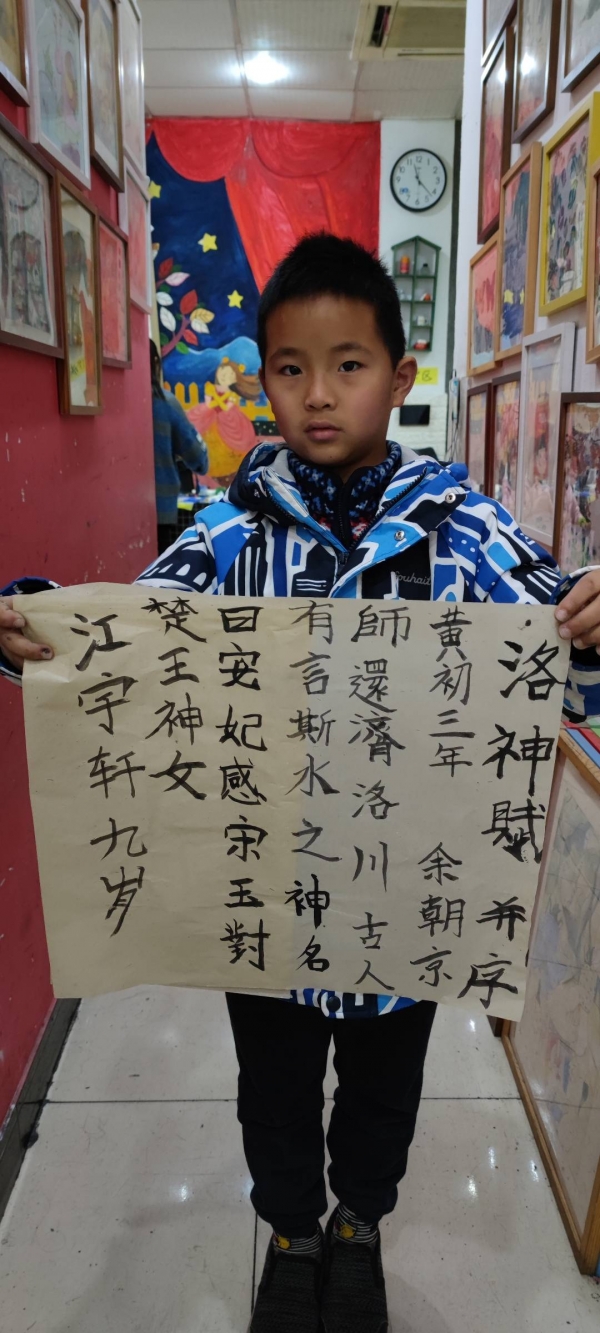 洛神賦并序
黄初三年 余朝京
師還濟洛川古人
有言斯水之神名
曰宓妃感宋玉對
楚王神女
江宇轩九岁
ouhait